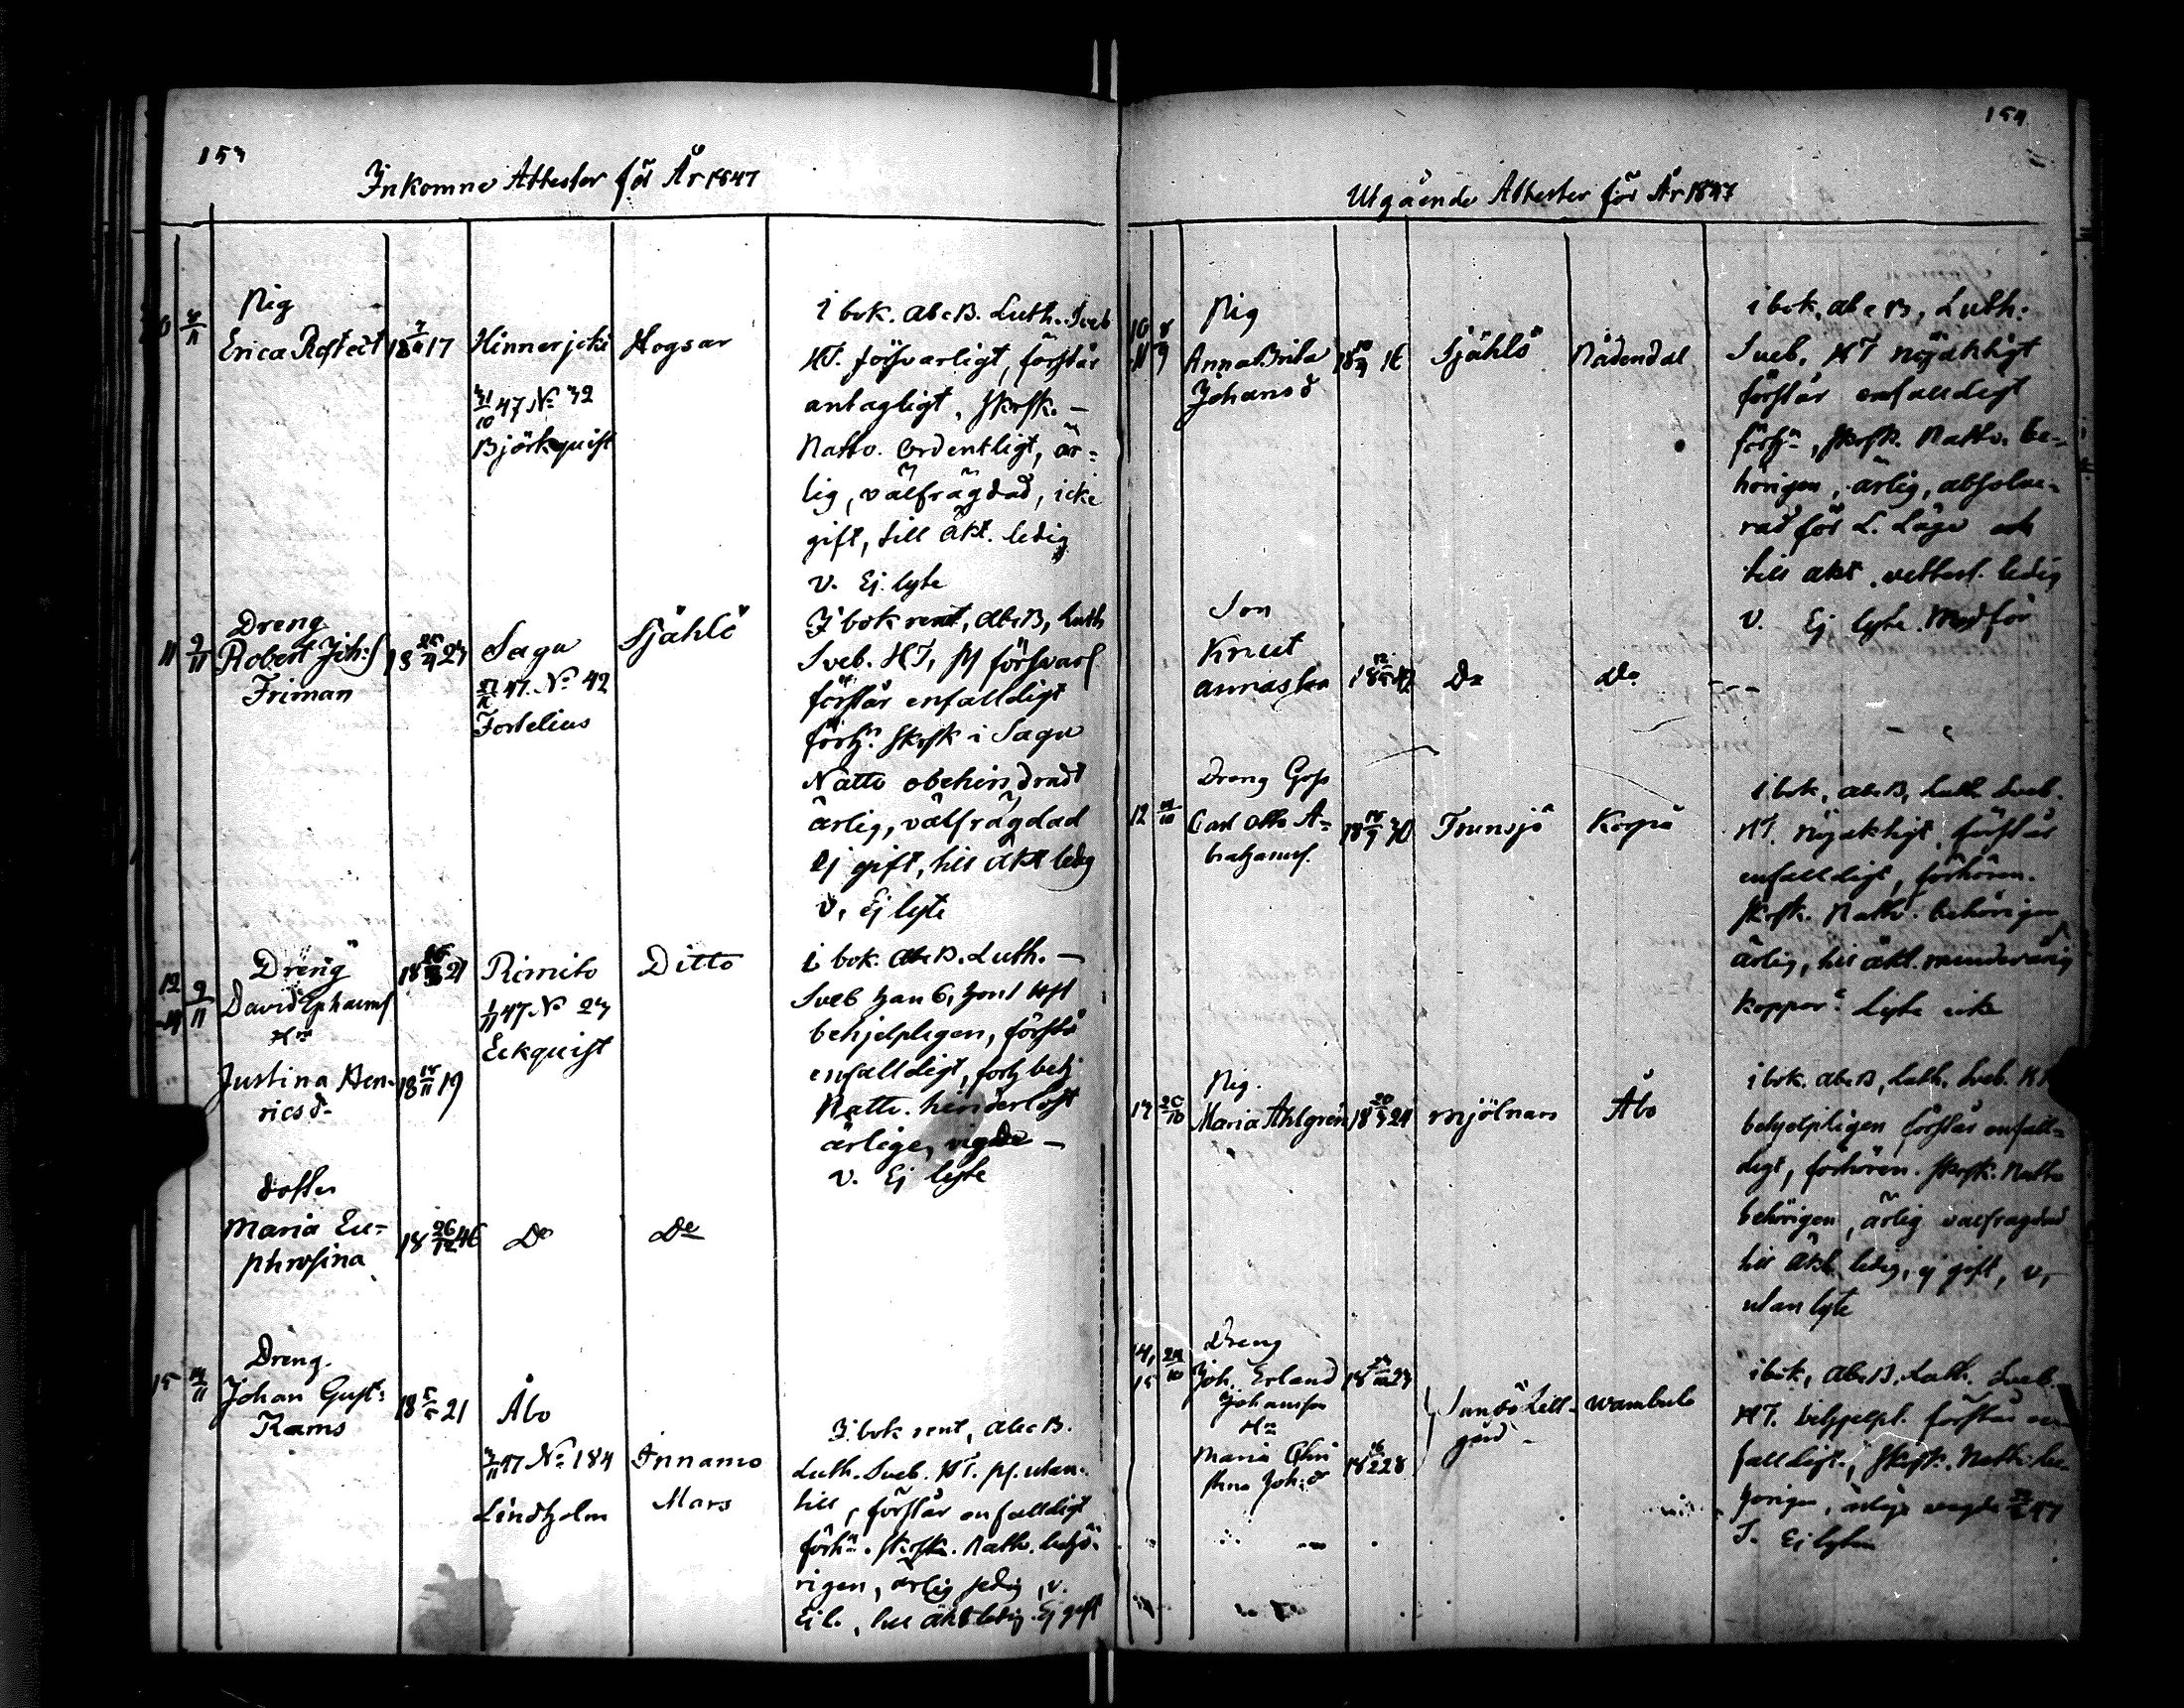 153
Inkomne Attester för År 1847
10 4/11
Pig
Erica Rostedt
18 7/4 17
Hinnerjoki
31/10 47 No 32
Björkquist
Hogsar
i bok. Abc B. Luth. Sveb
HT. försvarligt, förstår
antagligt, Skrsk. —
Nattv. Ordentligt, är-
lig, välfrägdad, icke
gift, till äkt. ledig
v. Ej lyte
11 9/11
Dreng
Robert Joh:s
Friman
18 25/4 23
Sagu
No 42
Fortelius
Sjählö
I bok rent, AbcB, Luth
Sveb. HT, Ps försvarl
förstår enfalldigt
förh: Skrsk i Sagu
Nattv obehindradt
ärlig, välfrägdad
ej gift, till äkt ledig
v, Ej lyte
12
14 9/11
Dreng
David Ephraims
Hu
Justina Hen-
ricsd-
21
18 15/11 19
Rimito
1/11 47 No 23
Eckquist
Ditto
i bok. Abc B. Luth. —
Sveb han 6, hon 1 Hst
behjelpligen, förstå
enfalldigt, förh beh
Nattv. hinderlöst
ärlige, vigde —
v. Ej lyte
dotter
Maria Eu-
phrosina
18 26/12 46
Do
Do
15 14/11
Dreng.
Johan Gust:
Rams
18 5/5 21
Åbo
3/11 47 No 184
Lindholm
Innamo
Mars
I bok rent, Abc B.
Luth. Sveb. HT. ps. utan-
till, förstår enfalldigt
förh: . Skrsk. Nattv. behö-
rigen, ärlig sedig, v.
Ej l., till äkt ledig. Ej gift
154
Utgående Attester för År 1847
10
11 8/9
Pig
Anna Brita
Johansd
16
Sjählö
Nådendal
i bok, abc B, Luth:
Sveb, HT nöjaktigt
förstår enfalldigt
förh:, Skrsk. Nattv. be-
hörigen, ärlig, absolve-
rad för L. Läge och
till äkt. ledig
v. Ej lyte. Medför
Son
Knut
Annasson
Do
do
12
Dreng Goss
Carl Otto A-
brahamss.
30
Trunsjö
Korpo
i bok, AbcB, Luth Sveb.
HT. nöjaktigt, förstår
enfalldigt, förhören.
Skrsk. Nattv. behörigen
ärlig, till äkt. minderårig
koppor: lyte icke
13 20/10
Pig.
Maria Ahlgren
24
Mjölnars
Åbo
i bok. AbcB, Luth. Sveb. HT
behjelpligen förstår enfall-
digt, förhören. Skrsk. Nattv
behörigen, ärlig välfrägdad
till äkt ledig, ej gift, v,
utan lyte
14,
15 24/10
Dreng
Joh. Erland
Johansson
Hu
Maria Chri
stina Joh:d
28
Sandö Lill-
gård -
Wambula
i bok, AbcB, Luth. Sveb.
HT. behjelpl. förstår en-
falldigt, Skrsk. Nattv be-
hörigen, ärliga vigda 47
Ej lyten